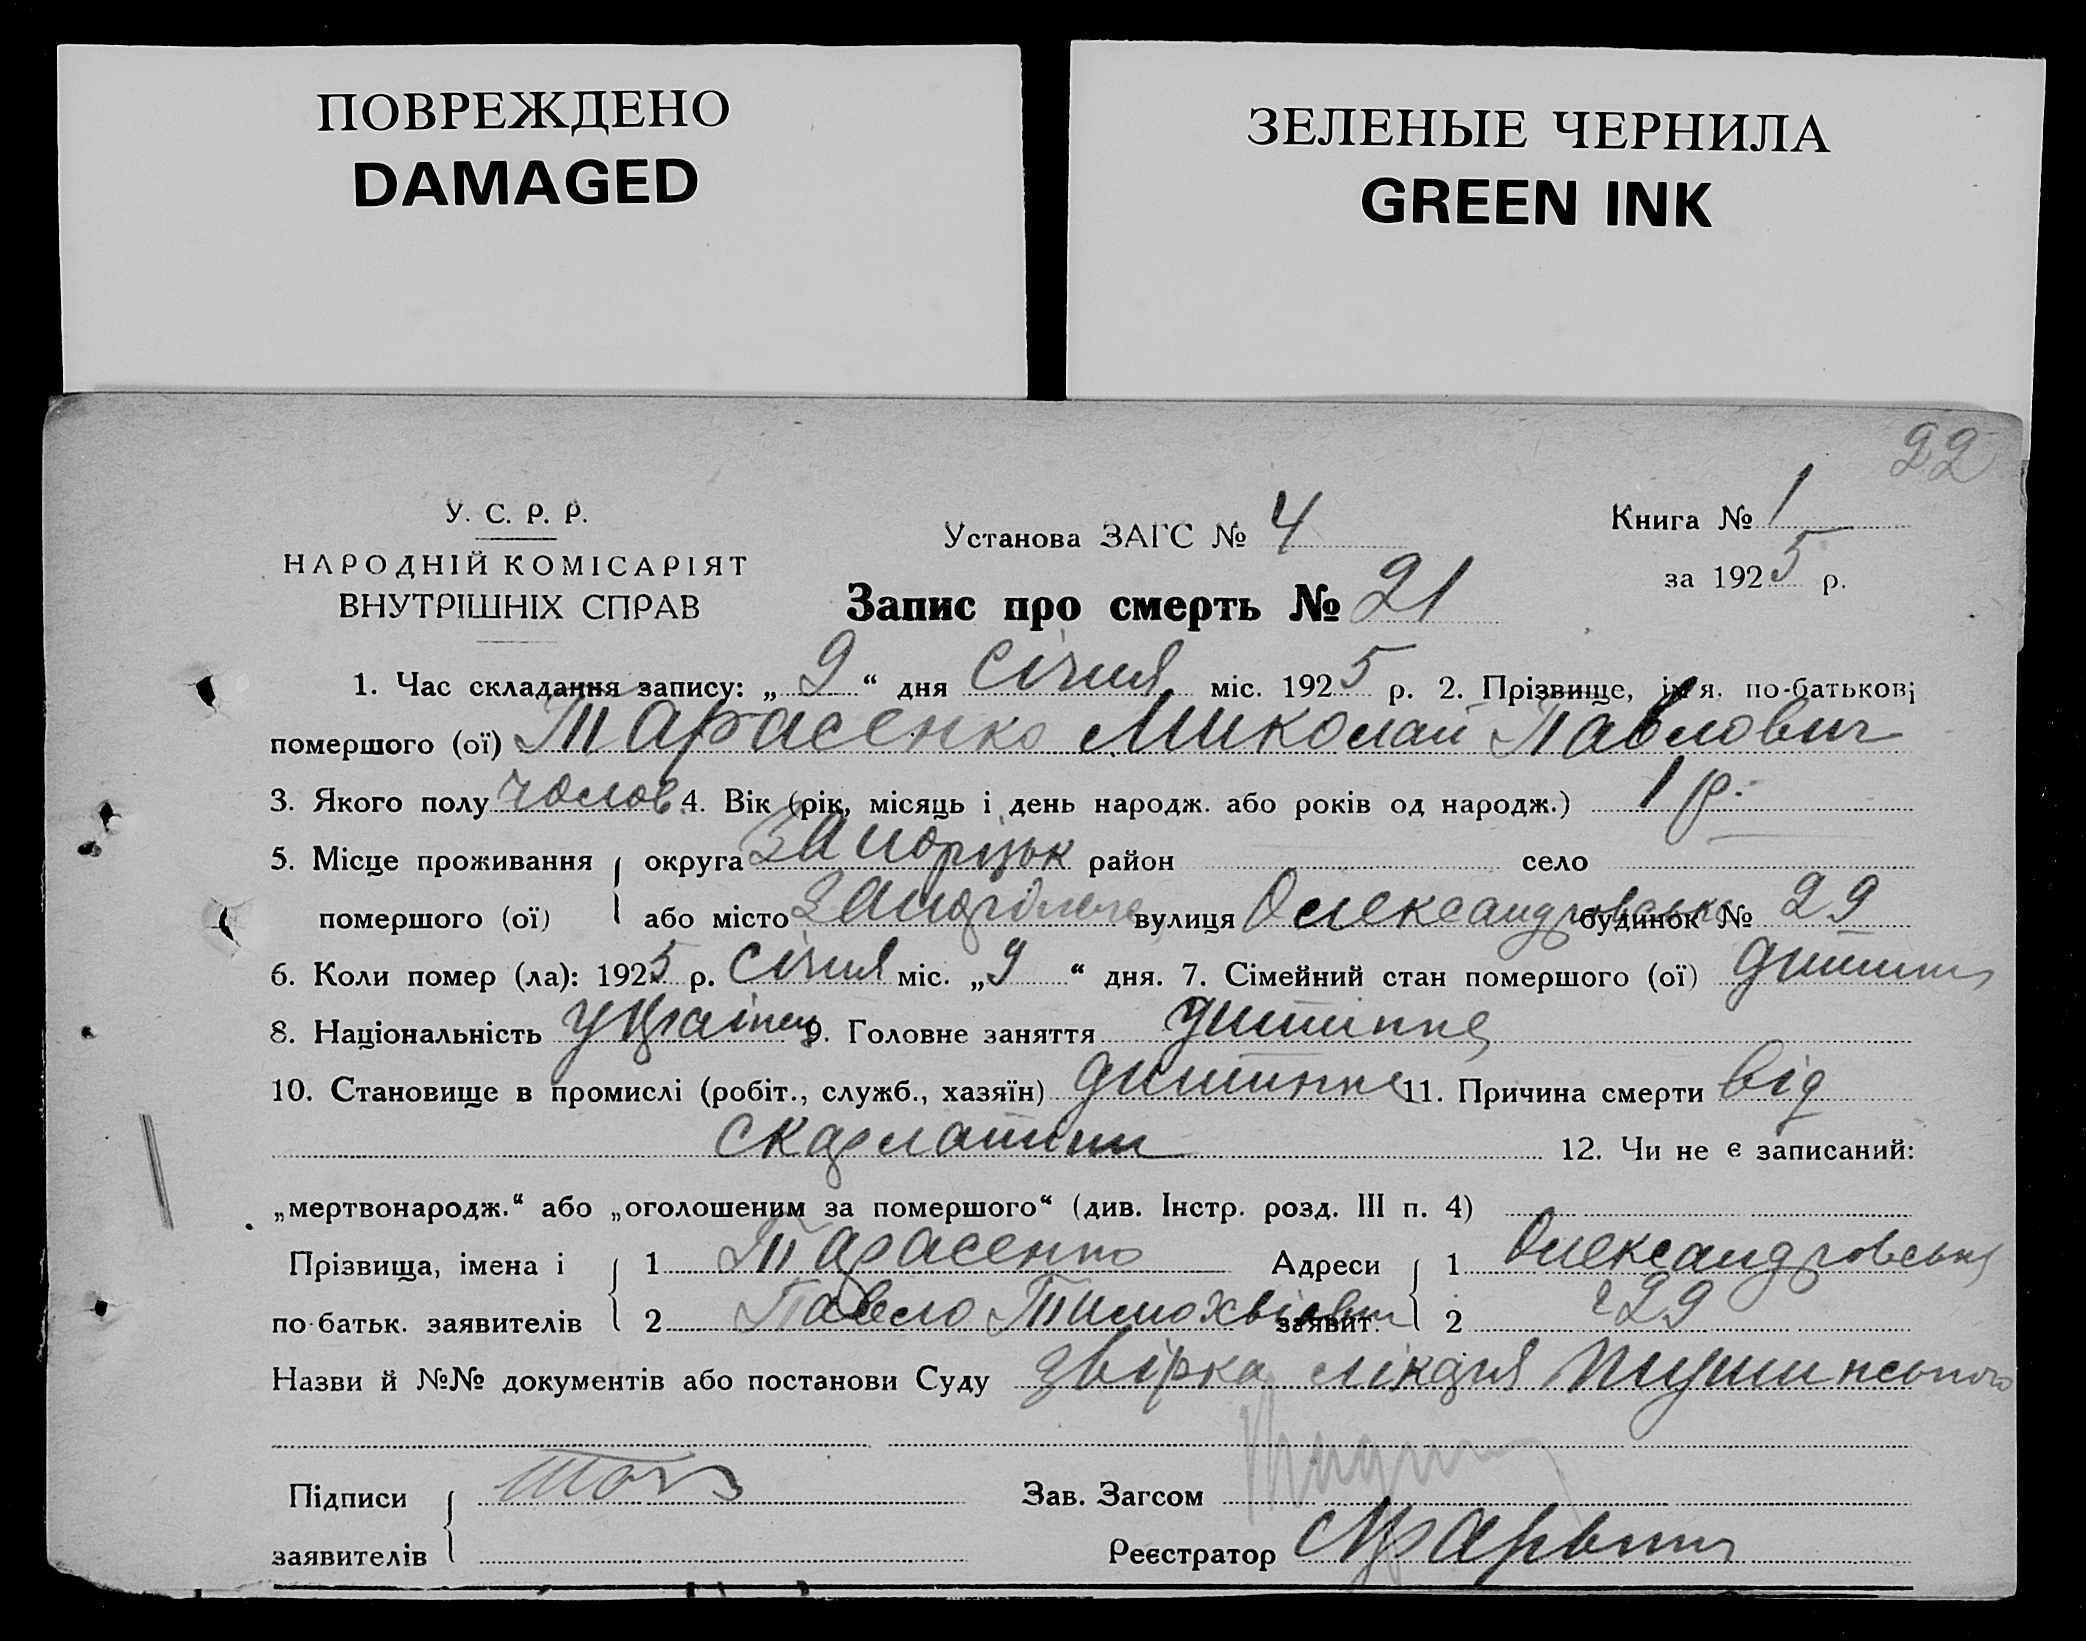 ПОВРЕЖДЕНО
DAMAGED
ЗЕЛЕНЫЕ ЧЕРНИЛА
GREEN INK
22
У. С. Р. Р.
НАРОДНІЙ КОМІСАРІЯТ
ВНУТРІШНІХ СПРАВ
Установа ЗАГС № 4
Книга № 1
за 1925 р.
Запис про смерть № 21
1. Час складання запису: „ 9 “ дня Січня міс. 1925 р. 2. Прізвище, ім'я, по-батькові
помершого (ої) Тарасенко Миколай Павлович
3. Якого полу чолов. 4. Вік (рік, місяць і день народж. або років од народж.) 1 р.
5. Місце проживання округа Запоріжж район село
помершого (ої) або місто вулиця Олександровська будинок № 29
6. Коли помер (ла): 1925 р. Січня міс. „ 9 “ дня. 7. Сімейний стан помершого (ої) дитина
8. Національність Україн. 9. Головне заняття дитинне
10. Становище в промислі (робіт., служб., хазяїн) дитинне 11. Причина смерти від
скарлатини 12. Чи не є записаний:
„мертвонародж.“ або „оголошеним за помершого“ (див. Інстр. розд. III п. 4)
Прізвища, імена і 1 Тарасенко Адреси 1 Олександровська
по-батьк. заявителів 2 Павло Тимохвієвич заявит. 2 29
Назви й №№ документів або постанови Суду лікаря
Підписи Зав. Загсом
заявителів Реєстратор